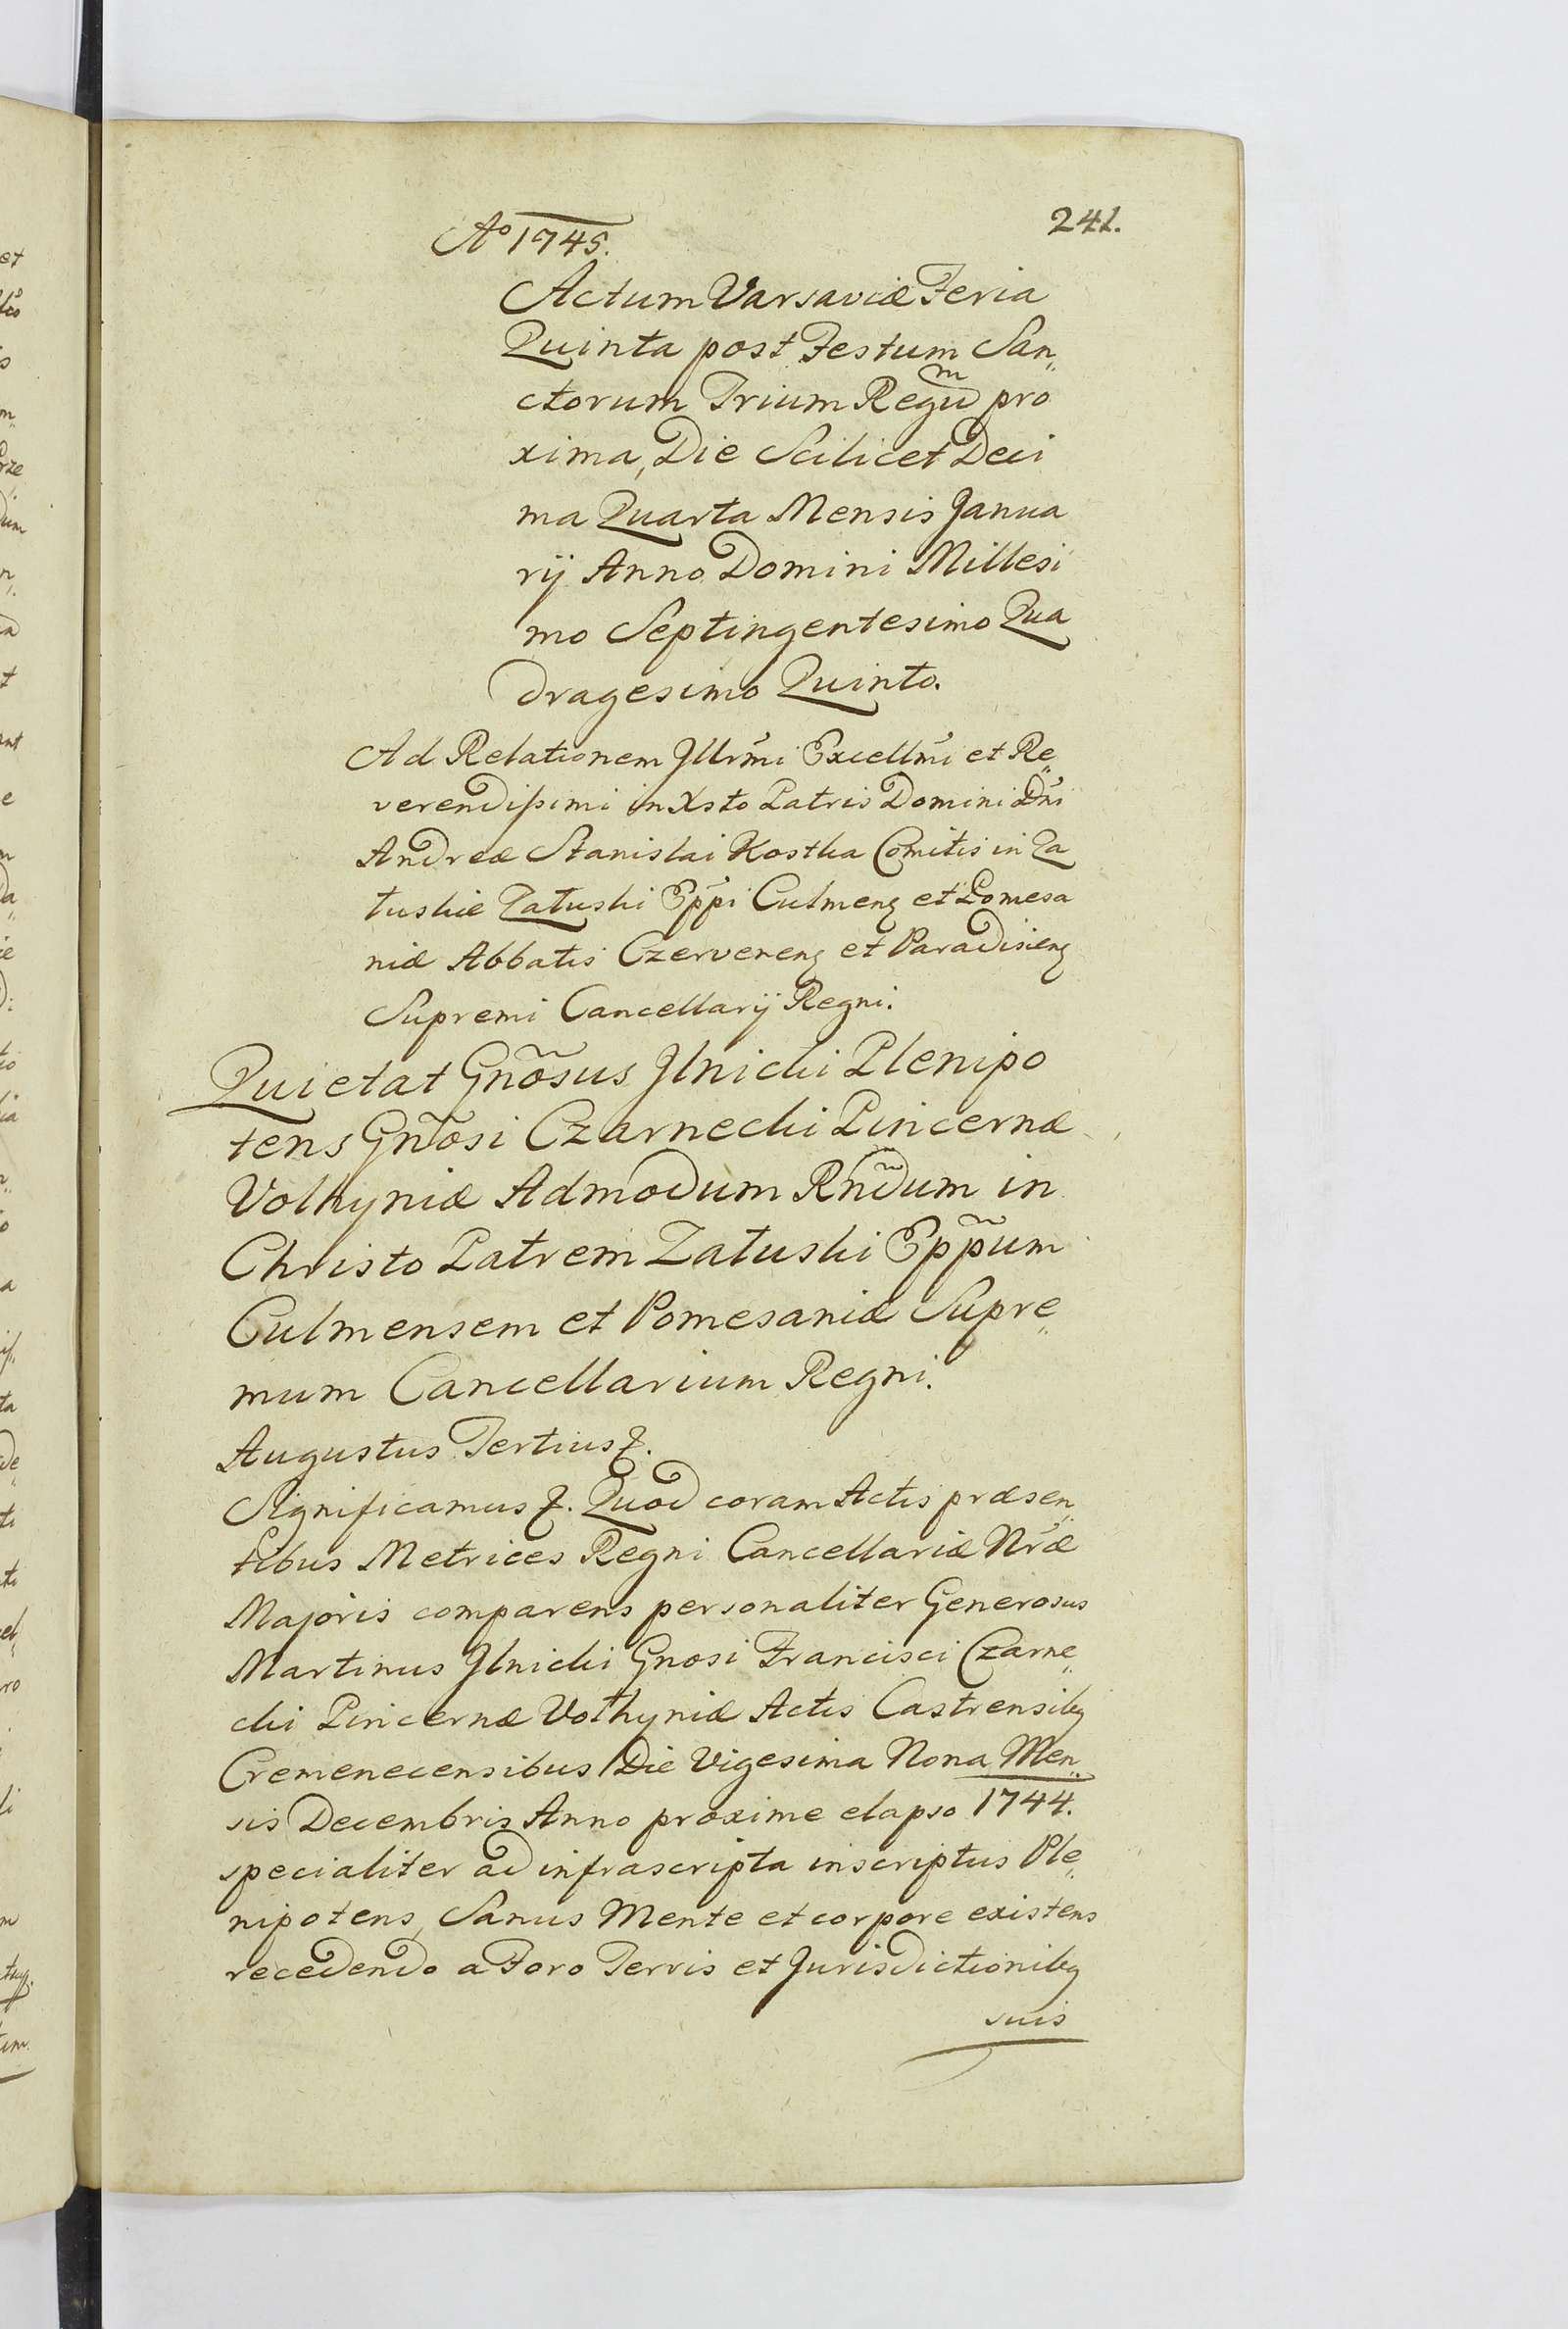 241.
Aº 1745.
Actum Varsaviæ Feria
Quinta post Festum San„
ctorum Trium Regũm pro
xima, Die Scilicet Deci
ma Quarta Mensis Janua
rij Anno Domini Millesi
mo Septingentesimo Qua
dragesimo Quinto.
Ad Relationem Jllrm̃i Excellm̃i et Re„
verendißimi in Xsto Patris Domini Dñi
Andreæ Stanislai Kostka Comitis in Za
łuskie Załuski Epp̃i Culmenꝫ et Pomesa
niæ Abbatis Czervenenꝫ et Paradisienꝫ
Supremi Cancellarij Regni.
Quietat Gnõsus Jlnicki Plenipo
tens Gnõsi Czarnecki Pincernæ
Volhyniæ Admodum Rñdum in
Christo Patrem Załuski Epp̃um
Culmensem et Pomesaniæ Supre„
mum Cancellarium Regni.
Augustus Tertius ꝛ.
Significamus ꝛ. Quod coram Actis præsen„
tibus Metrices Regni Cancellariæ Nr̃æ
Majoris comparens personaliter Generosus
Martinus Jlnicki Gnosi Francisci Czarne„
cki Pincernæ Volhyniæ Actis Castrensibꝫ
Cremenecensibus Die Vigesima Nona Men„
sis Decembris Anno proxime elapso 1744.
specialiter ad infrascripta inscriptus Ple„
nipotens, Sanus Mente et corpore existens
recedendo a Foro Terris et Jurisdictionibꝫ
suis